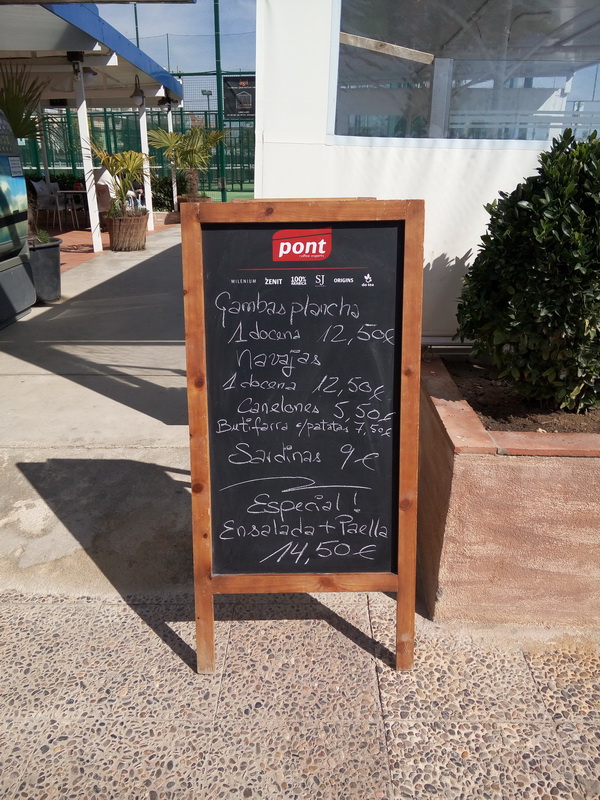 pont
MILENIUM ŽENIT 100% ARABICA SJ ORIGINS
Gambas plancha
1 docena 12,50€
Navajas
1 docena 12,50€
Canelones 5,50€
Butifarra c/patatas 7,50€
Sardinas 9€
Especial!
Ensalada + Paella
14,50€